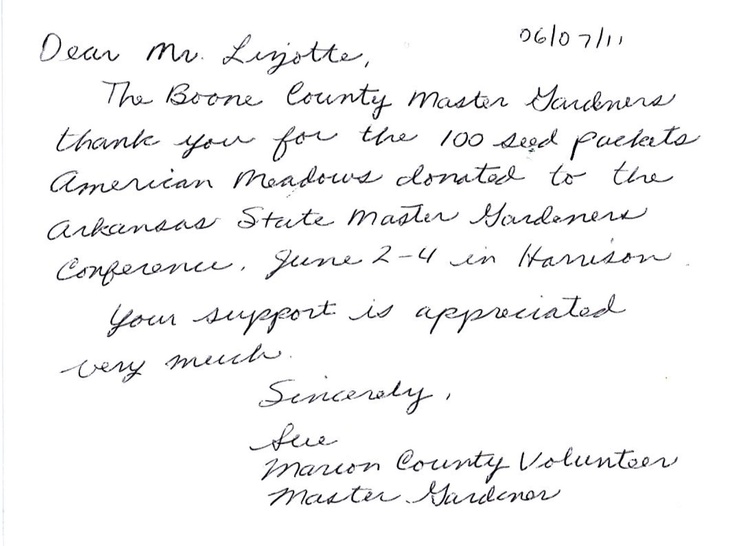 06/07/11
Dear Mr. Lizotte,
The Boone County Master Gardners
thank you for the 100 seed packets
American Meadows donated to the
Arkansas State Master Gardeners
Conference, June 2-4 in Harrison.
Your support is appreciated
very much.
Sincerely,
Sue
Marion County Volunteer
Master Gardener